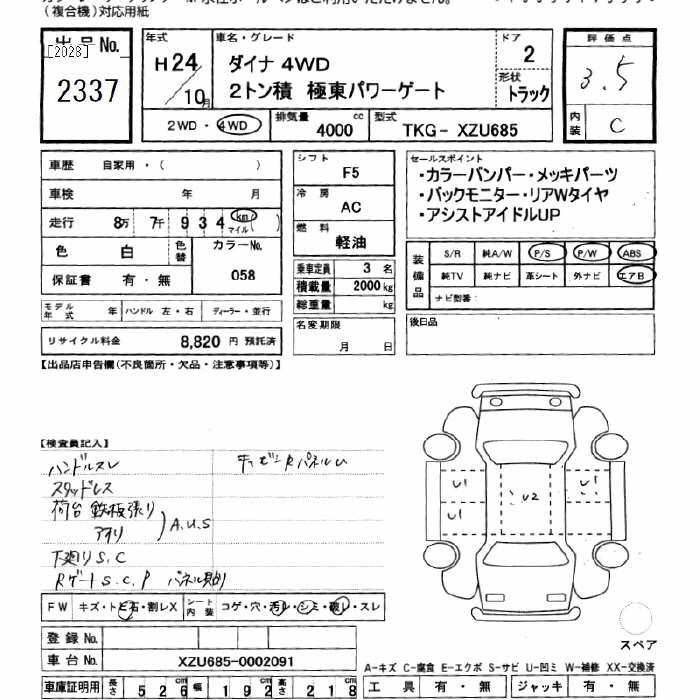 (複合機)対応用紙
出品No.
[2028]
2337
年式
H24/10月
車名・グレード
ダイナ 4WD
2トン積 極東パワーゲート
ドア
2
形状
トラック
評価点
3.5
内装
C
2WD・4WD
排気量
4000 cc
型式
TKG- XZU685
車歴 自家用・( )
車検 年 月
走行 8万 7千 9 3 4 km マイル ( )
色 白 色替 カラーNo.
保証書 有・無 058
モデル年式 年 ハンドル 左・右 ディーラー・並行
リサイクル料金 8,820 円 預託済
シフト
F5
冷房
AC
燃料
軽油
乗車定員 3 名
積載量 2000 kg
総重量 kg
名変期限
月 日
セールスポイント
・カラーバンパー・メッキパーツ
・バックモニター・リアWタイヤ
・アシストアイドルUP
装備品 S/R 純A/W P/S P/W ABS
純TV 純ナビ 革シート 外ナビ エアB
ナビ型番:
後日品
【出品店申告欄(不良箇所・欠品・注意事項等)】
【検査員記入】
ハンドルスレ
スタッドレス
荷台 鉄板張り
アオリ
A.U.S
下廻りS.C
RゲートS.C.P パネル曲り
U1 U2 U1
U1
FW キズ・トビ石・割レX シート内装 コゲ・穴・汚レ・シミ・破レ・スレ
登録No.
車台No. XZU685-0002091
スペア
A-キズ C-腐食 E-エクボ S-サビ U-凹ミ W-補修 XX-交換済
車庫証明用 長さ 5 2 6 cm 幅 1 9 2 cm 高さ 2 1 8 cm
工具 有・無 ジャッキ 有・無